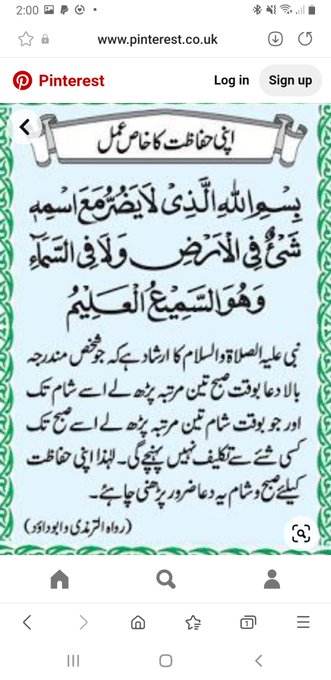 2:00
www.pinterest.co.uk
Pinterest
Log in
Sign up
اپنی حفاظت کا خاص عمل
بِسْمِ اللهِ الَّذِیْ لَا یَضُرُّ مَعَ اسْمِهٖ
شَیْءٌ فِی الْاَرْضِ وَلَا فِی السَّمَآءِ
وَهُوَ السَّمِیْعُ الْعَلِیْمُ
نبی علیہ الصلاۃ والسلام کا ارشاد ہے کہ جو شخص مندرجہ
بالا دعا بوقت صبح تین مرتبہ پڑھ لے اسے شام تک
اور جو بوقت شام تین مرتبہ پڑھ لے اسے صبح تک
کسی شئے سے تکلیف نہیں پہنچے گی۔ لہٰذا اپنی حفاظت
کیلئے صبح و شام یہ دعا ضرور پڑھنی چاہئے۔
(رواہ الترمذی وابوداؤد)
1